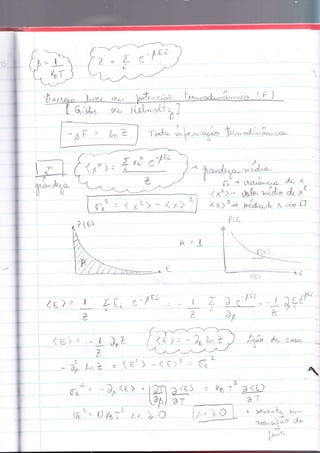 β = 1 / k_B T
Z = Σ_i e^{-βE_i}
Energia livre ou potencial termodinâmico (F)
[Gibbs ou Helmoltz]
-βF = ln Z
Toda informação termodinâmica
x^n grandeza
<x^n> = Σ x_i^n e^{-βE_i} / Z
→ grandeza média
σ_x → variância de x
<x²> → valor médio de x²
<x>² → média de x ao []
σ_x² = <x²> - <x>²
P(E)
A = 1
A
E
P(E)
P(E)
<E>
E
<E> = 1/Z Σ_i E_i e^{-βE_i} = -1/Z Σ_i ∂/∂β e^{-βE_i} = -1/Z ∂/∂β Σ e^{-βE_i}
<E> = -1/Z ∂_β Z
<E> = -∂_β ln Z
lição de casa
-∂_β² ln Z = <E²> - <E>² = σ_E²
σ_E² = -∂_β <E> = |∂T/∂β| ∂<E>/∂T = k_B T² ∂<E>/∂T
σ_E² = N k_B T² c_v ≥ 0
c_v ≥ 0
* somente em
transição de
fase